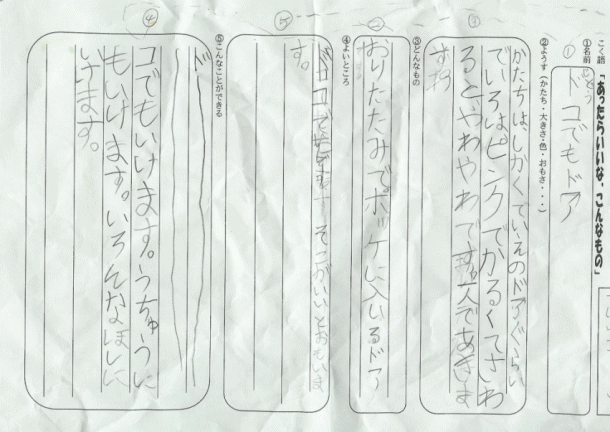 こく語 「あったらいいな、こんなもの」
①名前
①
ドコでもドア
②ようす（かたち・大きさ・色・おもさ・・・）
③
かたちは、しかくでいえのドアぐらい
でいろはピンクでかるくてさわ
るとやわやわです。
③どんなもの
②
おりたたみでポッケに入いるドア
④よいところ
⑤
そこがいいとおもいま
す。
⑤こんなことができる
④
ド
コでもいけます。うちゅうに
もいけます。いろんなほしに
いけます。